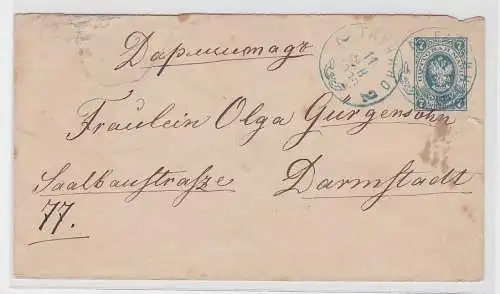 Дармштадт
Fräulein Olga Gurgensohn
Saalbaustrasze Darmstadt
77.